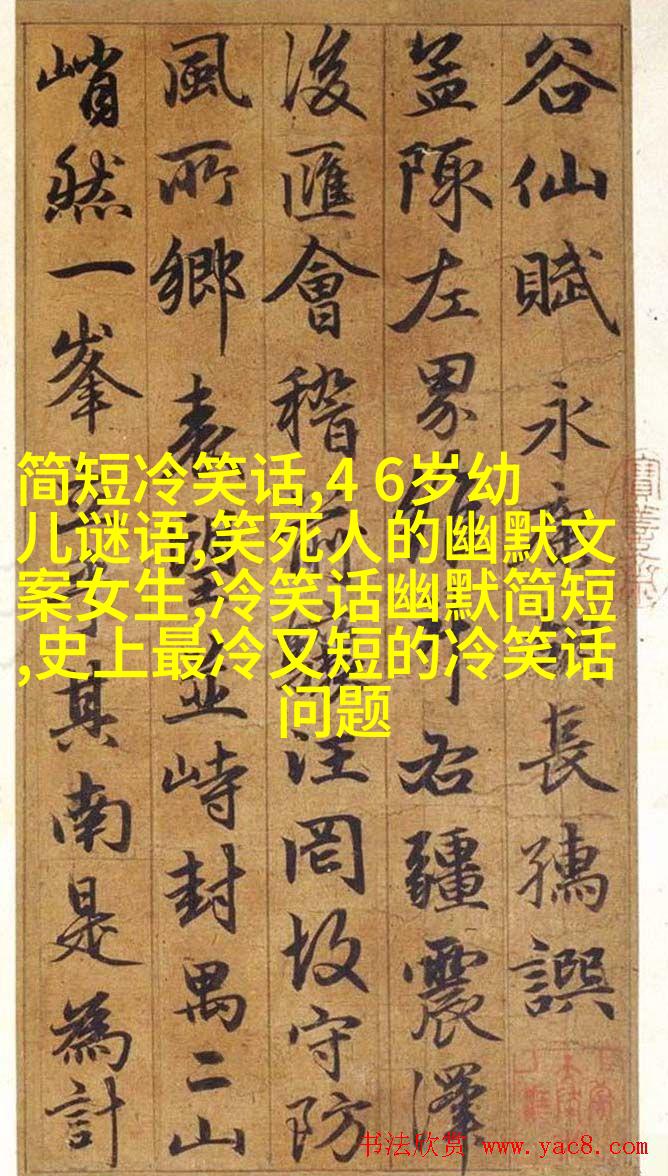 谷仙賦 永長孺譔
盖陳左界右疆震澤
後匯會稽前汪罔故守防
風所鄉表望並峙封禺二山
峭然一峯其南是為計
简短冷笑话,4 6岁幼
儿谜语,笑死人的幽默文
案女生,冷笑话幽默简短
,史上最冷又短的冷笑话
问题
书法欣赏 www.yac8.com